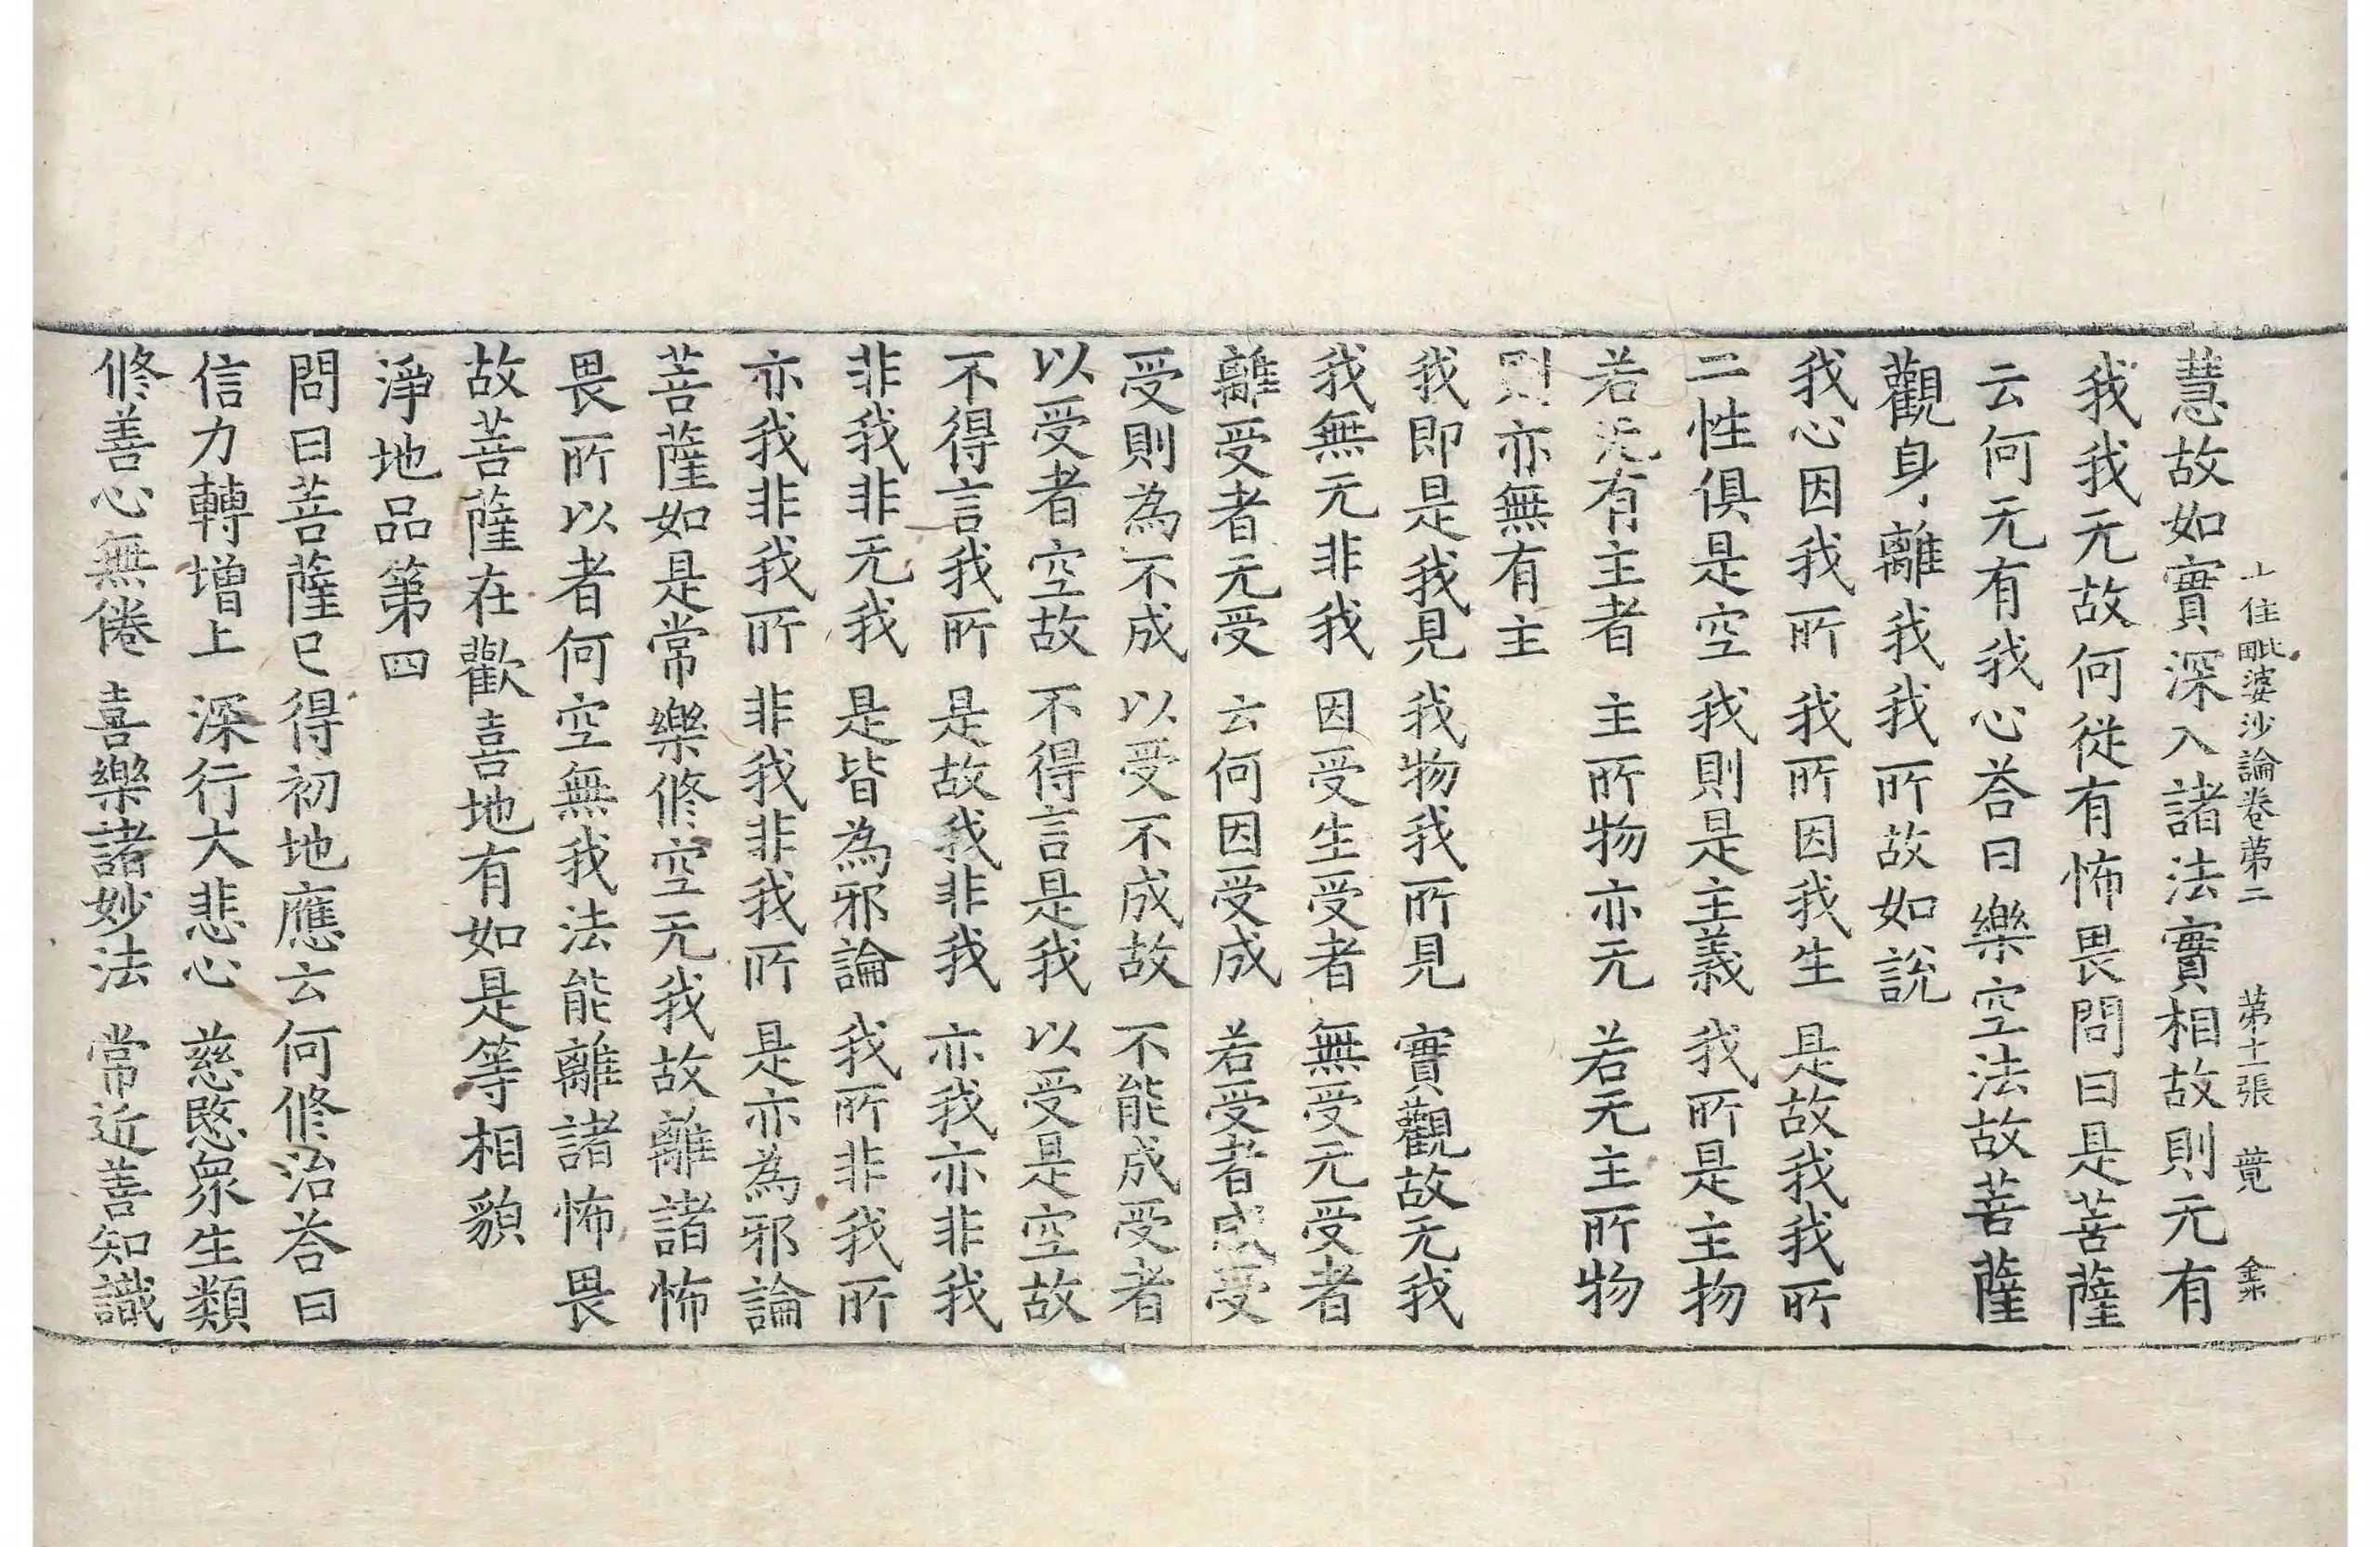 十住毗婆沙論卷第二　第十二張　薨　
慧故如實深入諸法實相故則无有
我我无故何從有怖畏問曰是菩薩
云何无有我心荅曰樂空法故菩薩
觀身離我我所故如說
我心因我所　我所因我生　是故我我所
二性俱是空　我則是主義　我所是主物
若无有主者　主所物亦无　若无主所物
則亦無有主
我即是我見　我物我所見　實觀故无我
我無无非我　因受生受者　無受无受者
離受者无受　云何因受成　若受者成受
受則為不成　以受不成故　不能成受者
以受者空故　不得言是我　以受是空故
不得言我所　是故我非我　亦我亦非我
非我非无我　是皆為邪論　我所非我所
亦我非我所　非我非我所　是亦為邪論
菩薩如是常樂修空无我故離諸怖
畏所以者何空無我法能離諸怖畏
故菩薩在歡喜地有如是等相貌
淨地品第四
問曰菩薩已得初地應云何修治荅曰
信力轉增上　深行大悲心　慈愍衆生類
修善心無倦　喜樂諸妙法　常近善知識